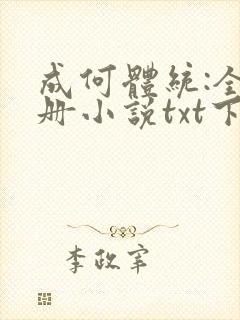 成何體統:全
册小説txt下
李政宰